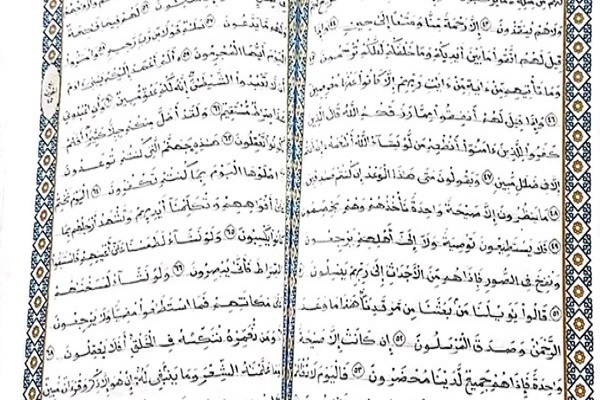 ولا هم ينقذون ٤٣ إلا رحمة منا ومتعا إلى حين ٤٤ وإذا
قيل لهم اتقوا ما بين أيديكم وما خلفكم لعلكم ترحمون
وما تأتيهم من ءاية من ءايت ربهم إلا كانوا عنها معرضين
٤٦ وإذا قيل لهم أنفقوا مما رزقكم الله قال الذين
كفروا للذين ءامنوا أنطعم من لو يشاء الله أطعمه
إلا في ضلل مبين ٤٧ ويقولون متى هذا الوعد إن كنتم صدقين
٤٨ ما ينظرون إلا صيحة وحدة تأخذهم وهم يخصمون
٤٩ فلا يستطيعون توصية ولا إلى أهلهم يرجعون
ونفخ في الصور فإذا هم من الأجداث إلى ربهم ينسلون
٥١ قالوا يويلنا من بعثنا من مرقدنا هذا ما وعد
الرحمن وصدق المرسلون ٥٢ إن كانت إلا صيحة
وحدة فإذا هم جميع لدينا محضرون ٥٣ فاليوم لا تظلم
ولهم ما يدعون ٥٧ سلم قولا من رب رحيم ٥٨ وامتزوا
اليوم أيها المجرمون ٥٩ ألم أعهد إليكم يبني ءادم
أن لا تعبدوا الشيطن إنه لكم عدو مبين ٦٠ وأن اعبدوني
هذا صرط مستقيم ٦١ ولقد أضل منكم جبلا كثيرا أفلم
تكونوا تعقلون ٦٢ هذه جهنم التي كنتم توعدون
اصلوها اليوم بما كنتم تكفرون ٦٤ اليوم نختم
على أفوههم وتكلمنا أيديهم وتشهد أرجلهم بما
كانوا يكسبون ٦٥ ولو نشاء لطمسنا على أعينهم فاستبقوا
الصرط فأنى يبصرون ٦٦ ولو نشاء لمسخنهم
على مكانتهم فما استطعوا مضيا ولا يرجعون
ومن نعمره ننكسه في الخلق أفلا يعقلون ٦٨
وما علمنه الشعر وما ينبغي له إن هو إلا ذكر وقرءان مبين